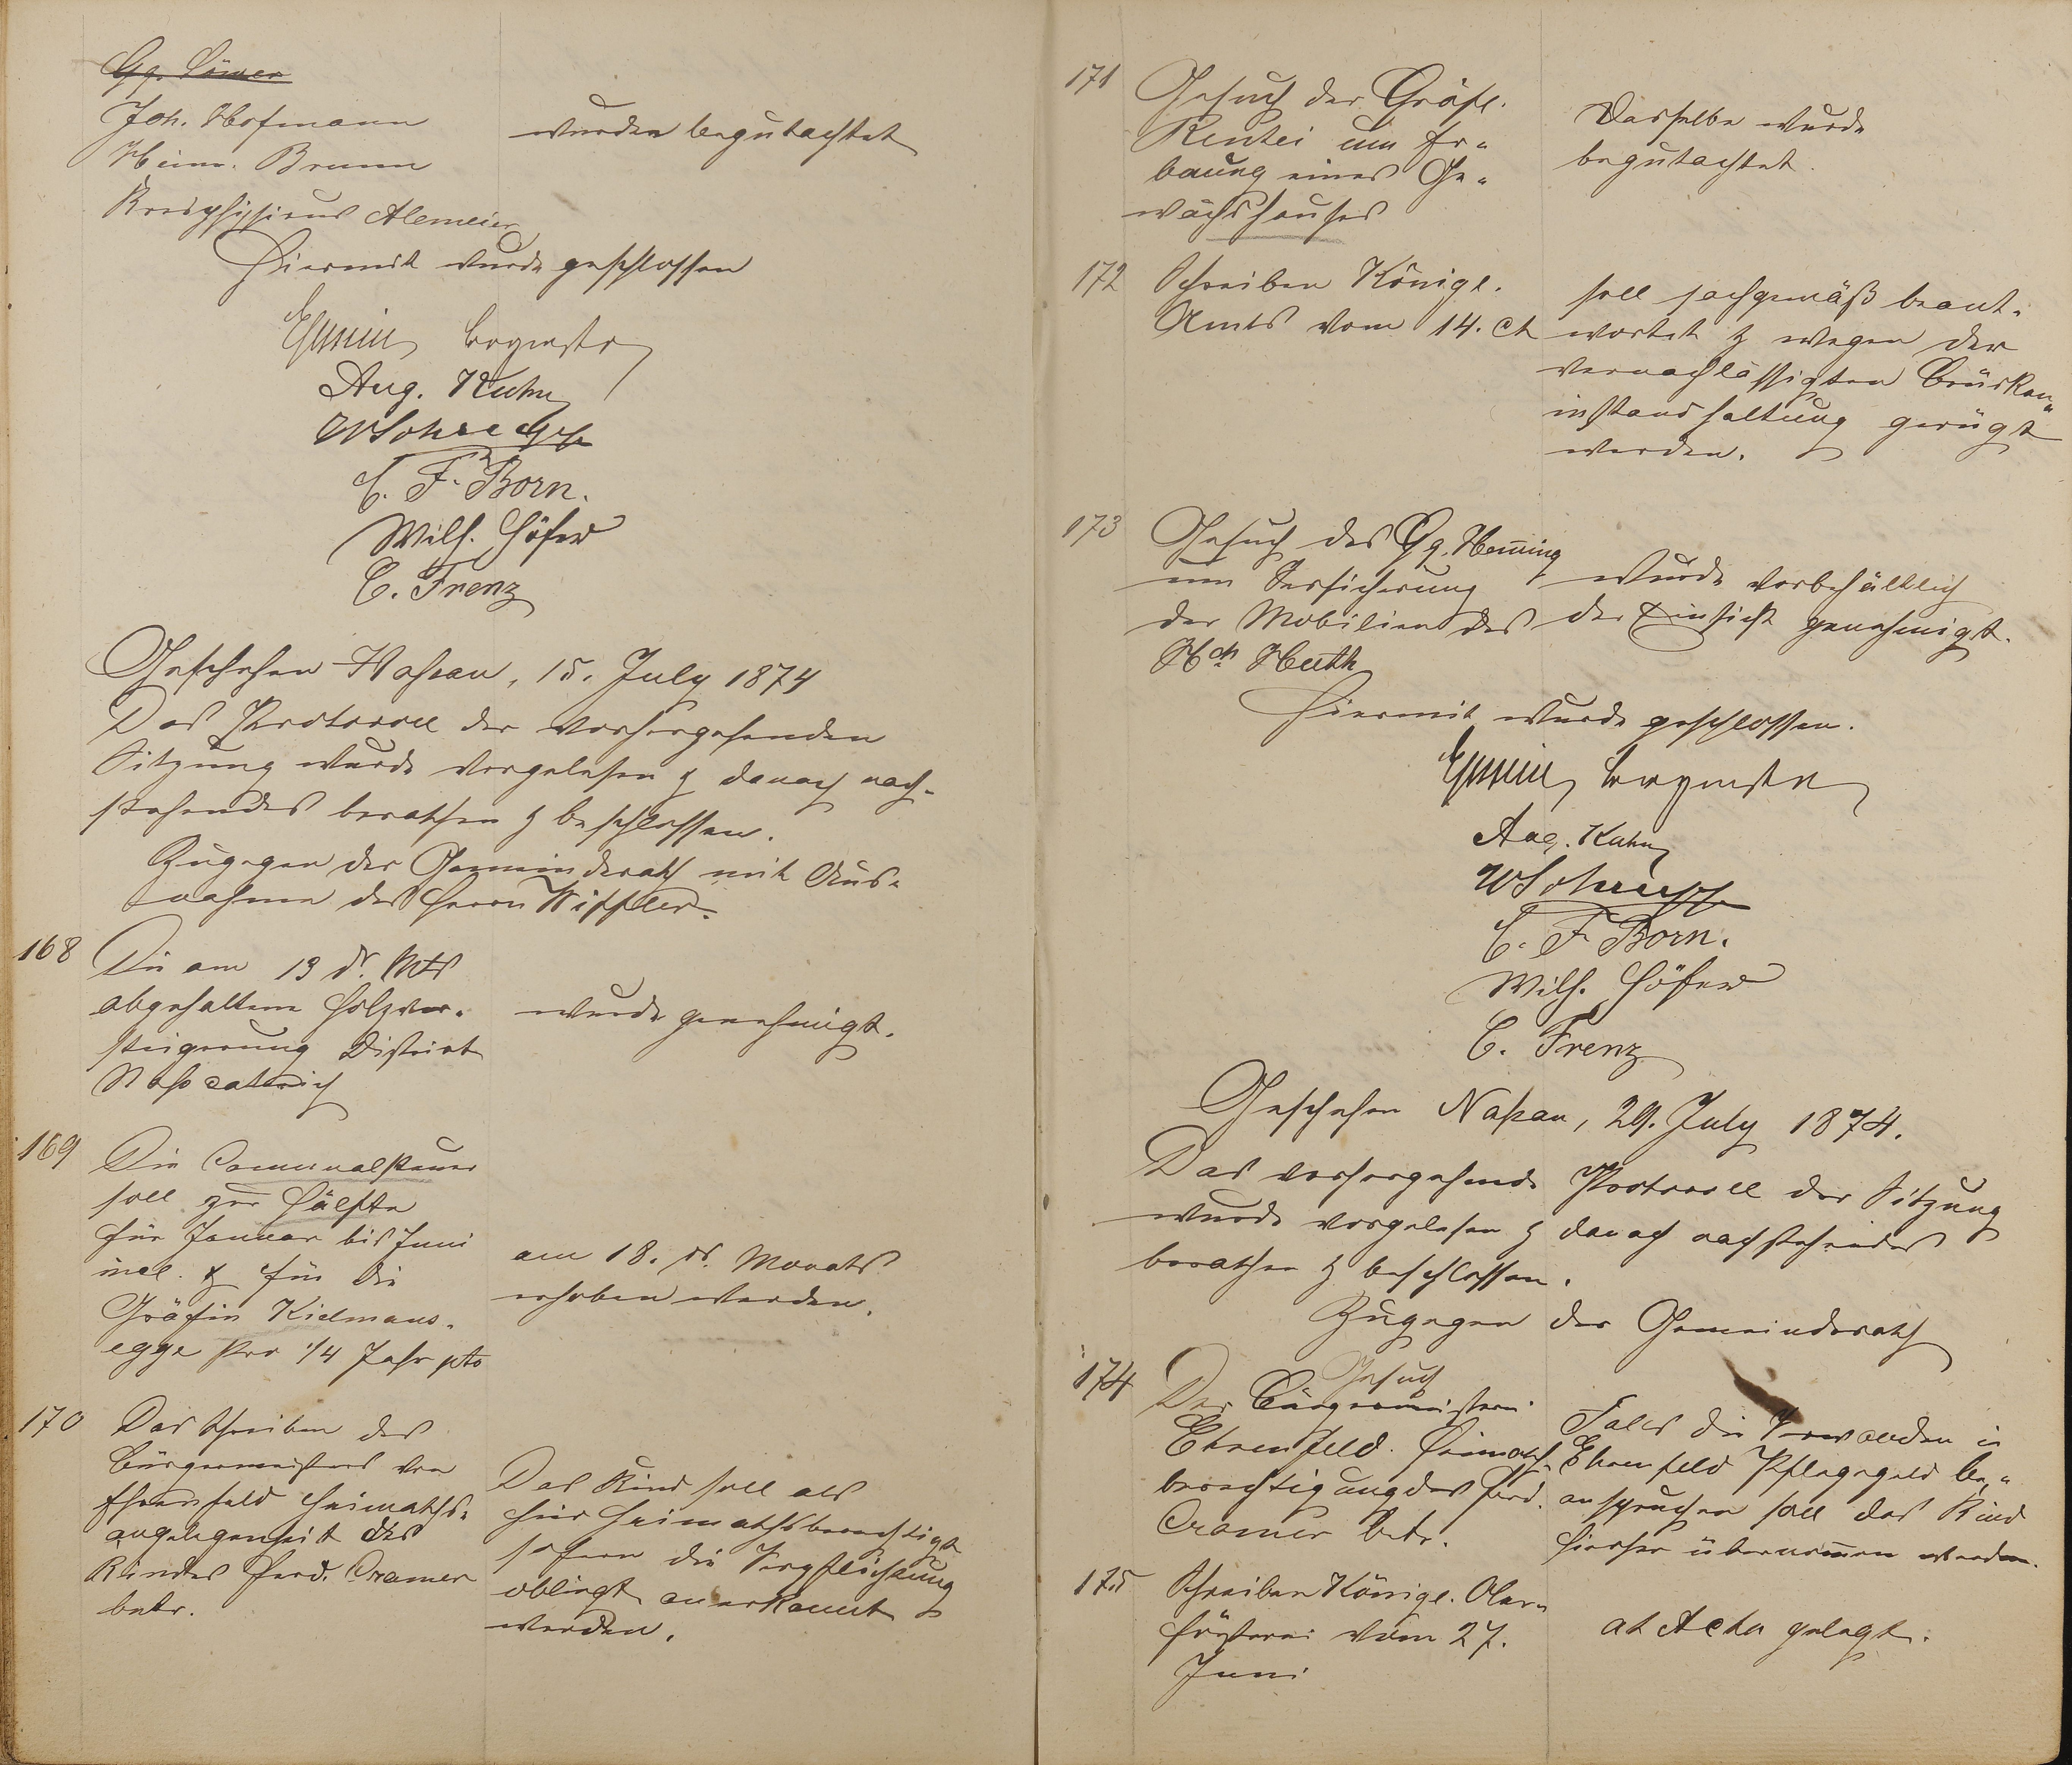 Joh. Hofmann
Heinr. Brumm
Kreisphysicus Alemeier
wurden begutachtet
Hiermit wurde geschlossen
Aug. Kuhn
C. F. Born.
Wilh. Höfer
C. Frenz
Geschehen Naßau, 15. July 1874
Das Protocoll der vorhergehenden
Sitzung wurde vorgelesen & danach nach-
stehendes berathen & beschlossen.
Zugegen der Gemeinderath mit Aus-
nahme des Herrn
168 Die am 13 ds. Mts
abgehaltene Holzver-
steigerung District
wurde genehmigt.
169 Die Communalsteuer
soll zur Hälfte
für Januar bis Juni
incl. & für die
Gräfin Kielmans-
egge pro 1/4 Jahr pto
am 18. ds. Monats
erhoben werden.
170 Das Schreiben des
Bürgermeisters von
Ehrenfeld Heimaths-
angelegenheit des
Kindes Ferd. Cramer
betr.
Das Kind soll als
hier heimathsberechtigt
sofern die Verpflichtung
obliegt anerkannt
werden.
171 Gesuch der Gräfl.
Rentei um Er-
bauung eines Ge-
wächshauses
Dasselbe wurde
begutachtet.
172 Schreiben Königl.
Amts vom 14. ct
soll sachgemäß beant-
wortet & wegen der
vernachlässigten Brücken-
instandhaltung gerügt
werden.
173 Gesuch des Gg. Heming
um Versicherung
der Mobilien des
Hch Huth
wurde vorbehältlich
der Einsicht genehmigt.
Hiermit wurde geschlossen.
Aug. Kuhn
C. F. Born.
Wilh. Höfer
C. Frenz
Geschehen Naßau, 29. July 1874.
Das vorhergehende Protocoll der Sitzung
wurde vorgelesen & danach nachstehendes
berathen & beschlossen.
Zugegen der Gemeinderath
174 Gesuch
Der Bürgermeisterei
Ehrenfeld. Heimaths-
berechtigung des Ferd.
Cramer betr.
Falls die Verwandten in
Ehrenfeld Pflegegeld be-
anspruchen soll das Kind
hierher übernommen werden.
175 Schreiben Königl. Ober-
försterei vom 27.
Juni
at Acta gelegt.